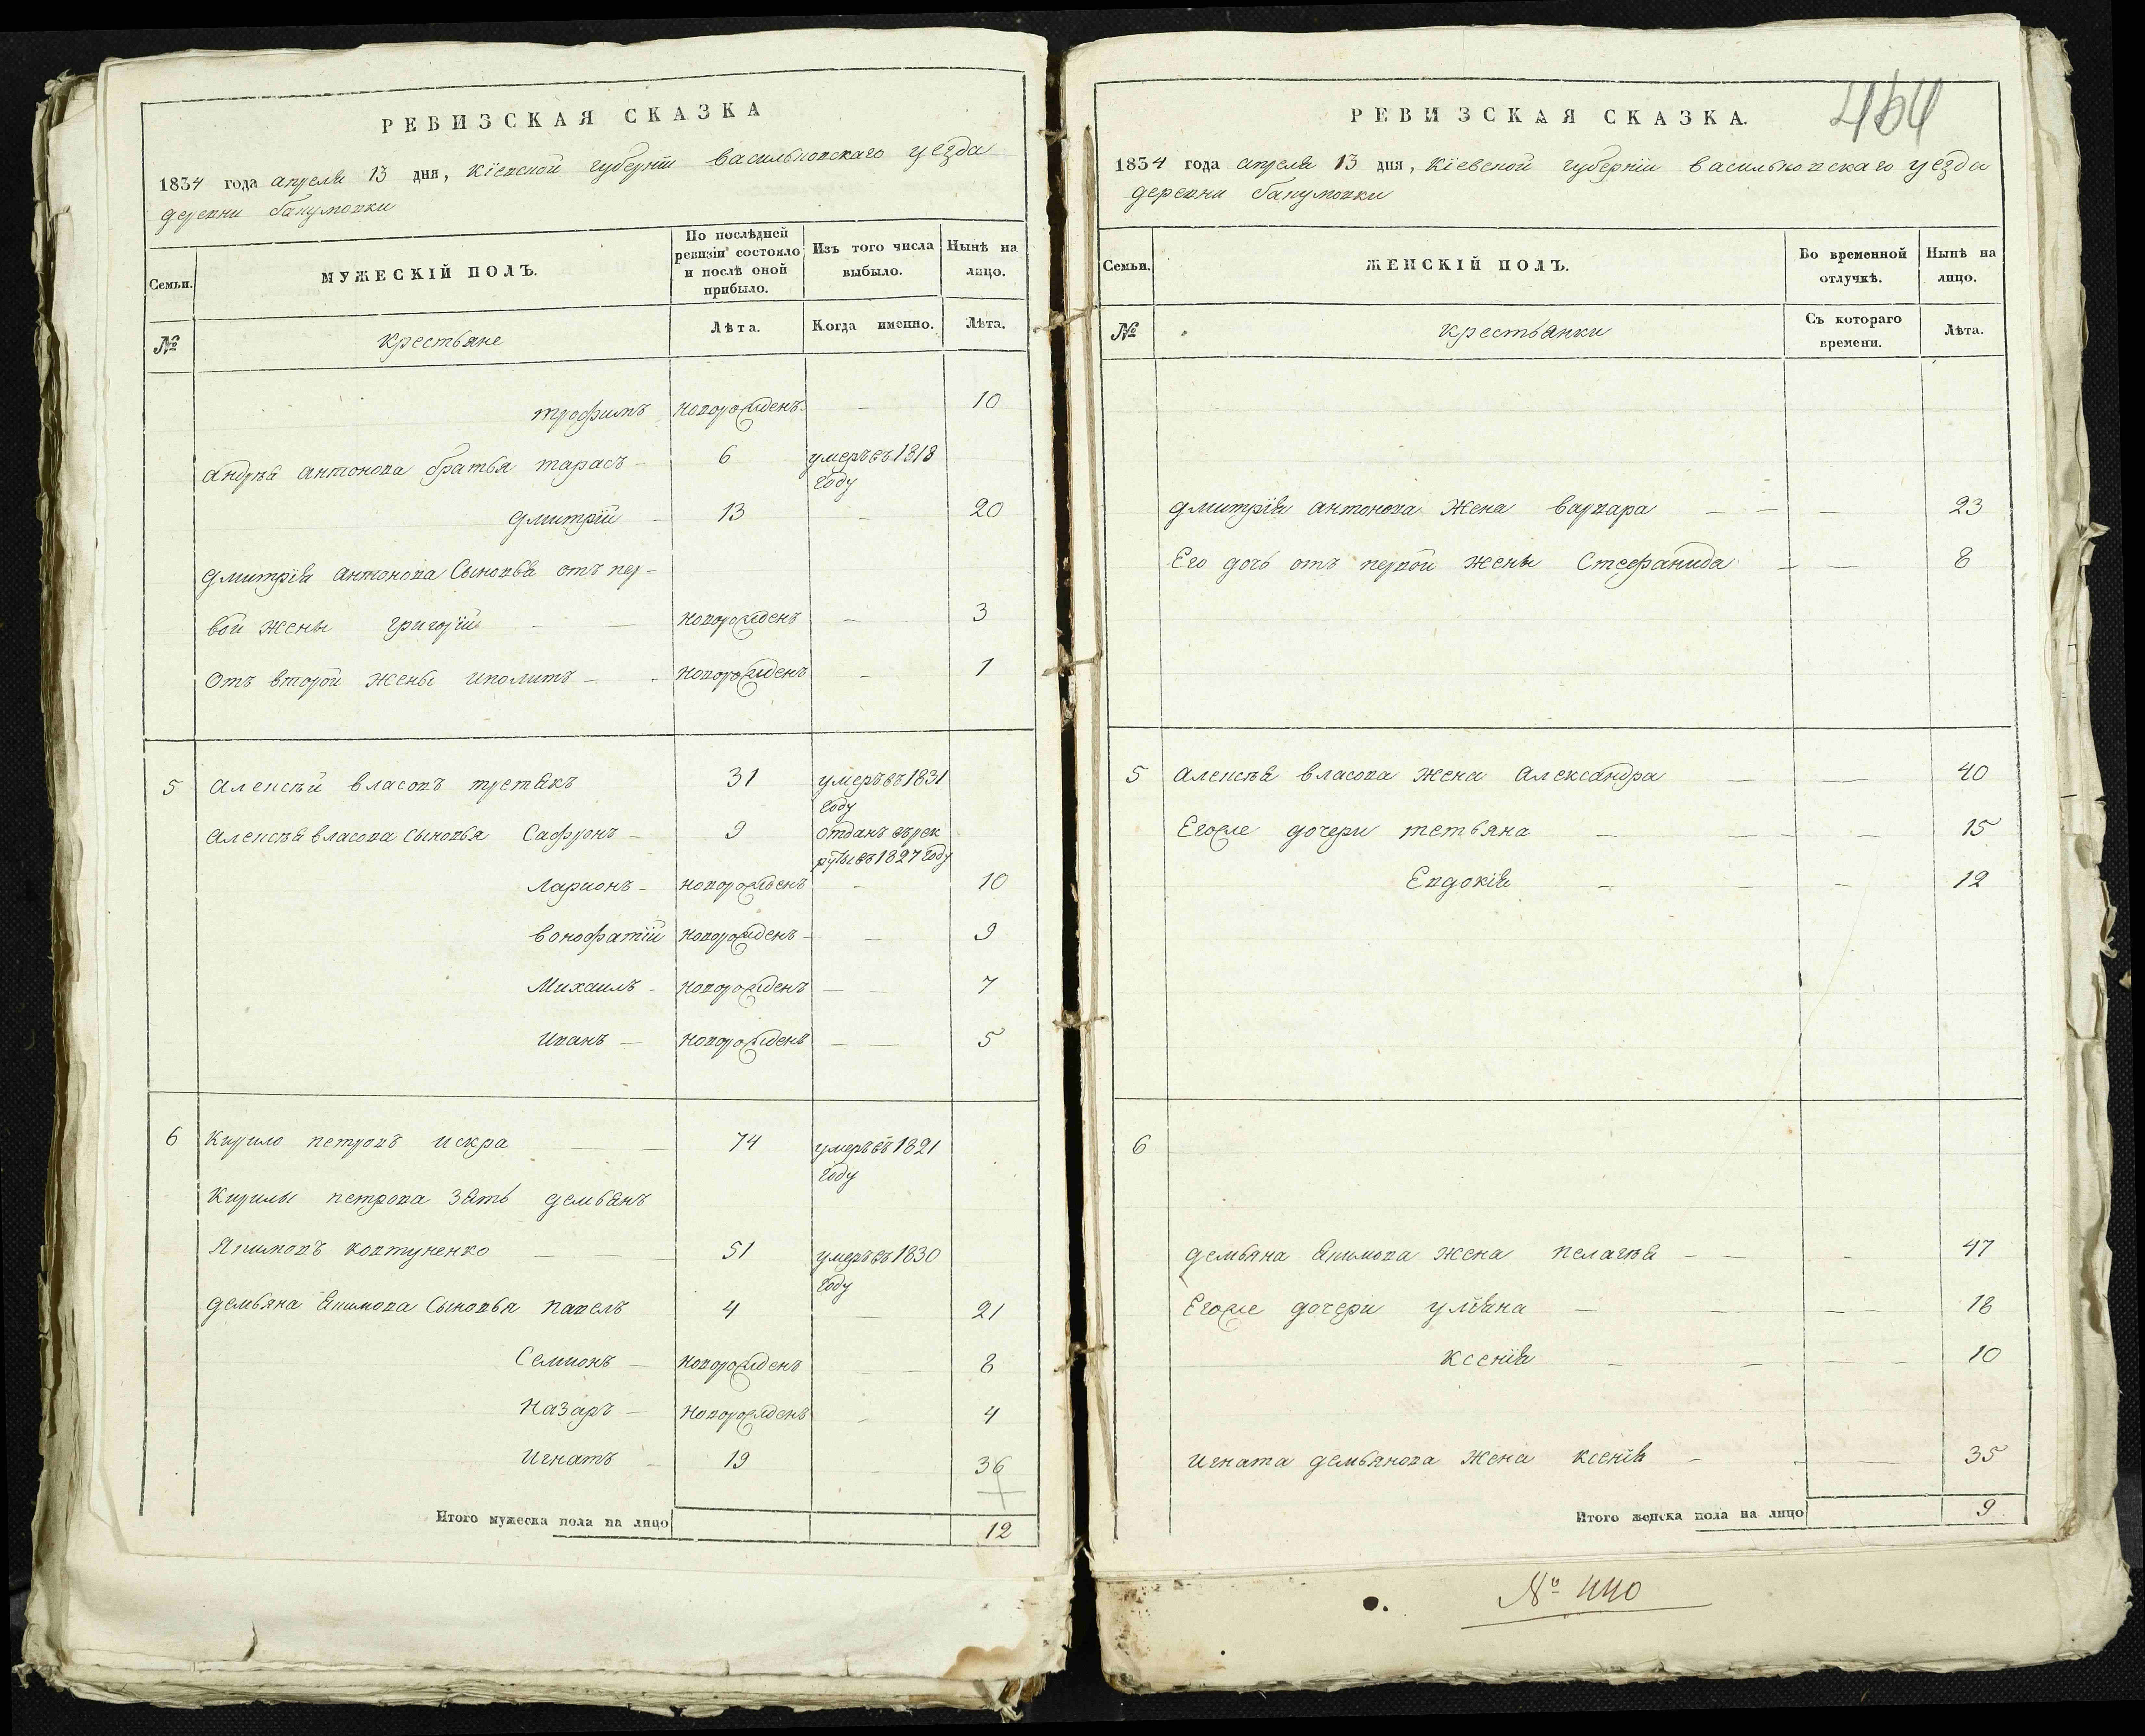 РЕВИЗСКАЯ СКАЗКА
1834 года апреля 13 дня, Кіевской губерніи васильковскаго уезда
деревни
Семьи.
МУЖЕСКІЙ ПОЛЪ.
По послѣдней ревизіи состояло и послѣ оной прибыло.
Изъ того числа выбыло.
Нынѣ на лицо.
№
Крестьяне
Лѣта.
Когда именно.
Лѣта.
трофимъ новорожденъ — 10
андрѣя антонова братья тарасъ — 6 умеръ въ 1818
году
дмитрій — 13 — 20
дмитрія антонова Сыновья отъ пер-
вой жены григорій — — новорожденъ — 3
Отъ второй жены иполитъ — - новорожденъ — 1
5 алексѣй власовъ 31 умеръ въ 1831
году
алексѣя власова сыновья Сафронъ — 9 отданъ въ рек
руты въ 1827 году
Ларионъ — новорожденъ — 10
вонофатій новорожденъ — — 9
Михаилъ - новорожденъ — — 7
иванъ — новорожденъ — — 5
6 Кирило петровъ искра — — 74 умеръ въ 1821
году
Кирилы петрова зять демьянъ
Якимовъ ковтуненко — — 51 умеръ въ 1830
году
демьяна Якимова Сыновья павелъ 4 — 21
Семионъ — новорожденъ — 8
назаръ — новорожденъ — 4
игнатъ — 19 — 36
Итого мужеска пола на лицо 12
464
РЕВИЗСКАЯ СКАЗКА.
1834 года апреля 13 дня, Кіевской губерніи васильковскаго уезда
деревни
Семьи.
ЖЕНСКІЙ ПОЛЪ.
Во временной отлучкѣ.
Нынѣ на лицо.
№
Крестьянки
Съ котораго времени.
Лѣта.
дмитрія антонова жена варвара — — — 23
Его дочь отъ первой жены Стефанида — — 8
5 алексѣя власова жена александра — — 40
Егоже дочери тетьяна — — — 15
Евдокія — — — 12
6
демьяна Якимова жена пелагѣя — — - 47
Егоже дочери уліяна — — — — 18
ксенія — — — — 10
игната демьянова жена ксенія — - — 35
Итого женска пола на лицо 9.
№ 440